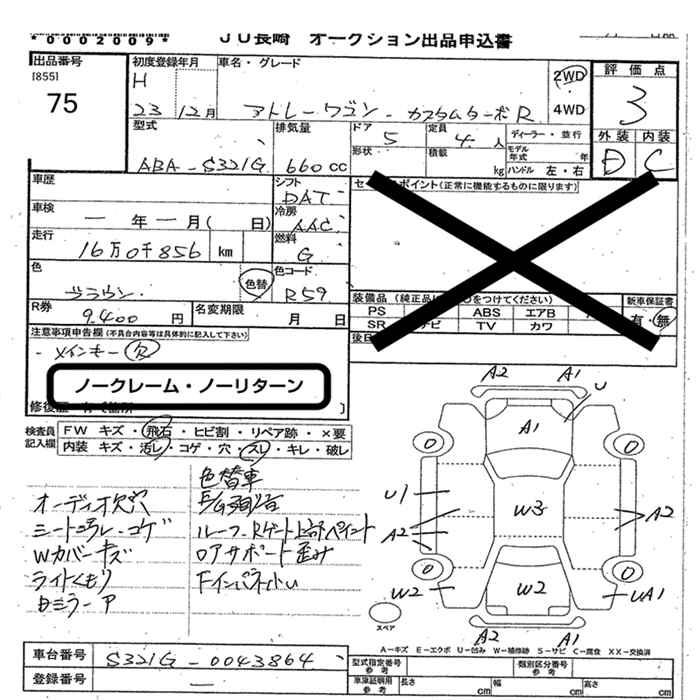 *0002009*
JU長崎 オークション出品申込書
出品番号
[855]
75
初度登録年月
H
23 12月
車名・グレード
アトレーワゴン カスタムターボR
2WD
4WD
評価点
3
外装 内装
D C
型式
ABA-S321G
排気量
660cc
ドア 5
形状
定員 4人
積載 kg
ディーラー・並行
モデル年式 年
ハンドル 左・右
車歴
シフト
DAT
セ ポイント(正常に機能するものに限ります)
車検
ー年ー月( 日)
冷房
AAC
走行
16万0千856 km
燃料
G
色
ブラウン
色替
色コード
R59
R券
9,400円
名変期限
月 日
装備品(純正品 をつけてください)
PS ABS エアB
SR ナビ TV カワ
新車保証書
有・無
後日
注意事項申告欄(不具合内容等は具体的に記入して下さい)
・メインキー欠
ノークレーム・ノーリターン
検査員記入欄
FW キズ・飛石・ヒビ割・リペア跡・×要
内装 キズ・汚レ・コゲ・穴・スレ・キレ・破レ
色替車
オーディオ欠穴
シートヨゴレ・コゲ
ルーフ、Rゲート上部ペイント
Wカバーキズ
コアサポート歪み
ライトくもり
A2 A1
U
A1
U1
W3
A2
A2
W2
W2
UA1
A2 A1
スペア
A-キズ E-エクボ U-凹み W-補修跡 S-サビ C-腐食 XX-交換済
車台番号
S321G-0043864
登録番号
ー
型式指定番号 参考
類別区分番号 参考
車庫証明用 参考
長さ cm
幅 cm
高さ cm